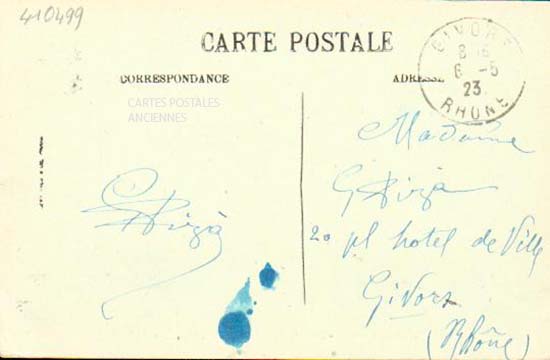 410499
CARTE POSTALE
CORRESPONDANCE
ADRESSE
CARTES POSTALES
ANCIENNES
GIVORS
6 -5
23
RHONE
Madame
20 pl hotel de Ville
Givors
(Rhône)